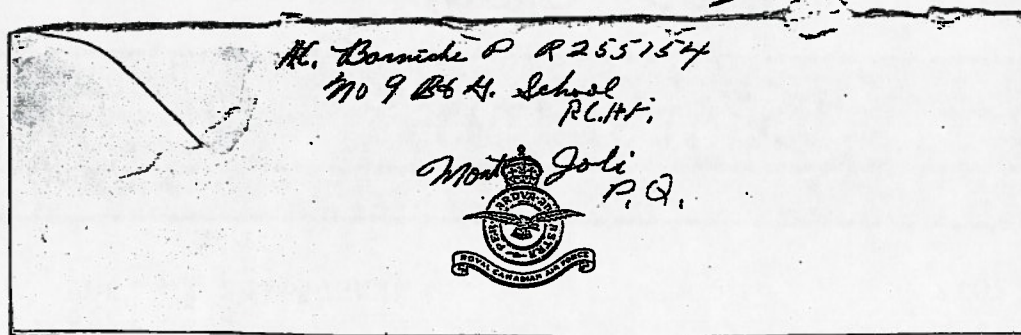 P R255154
No 9 B & G. School
R.C.A.F.
Mont Joli
P.Q.
PER ARDVA AD ASTRA
ROYAL CANADIAN AIR FORCE